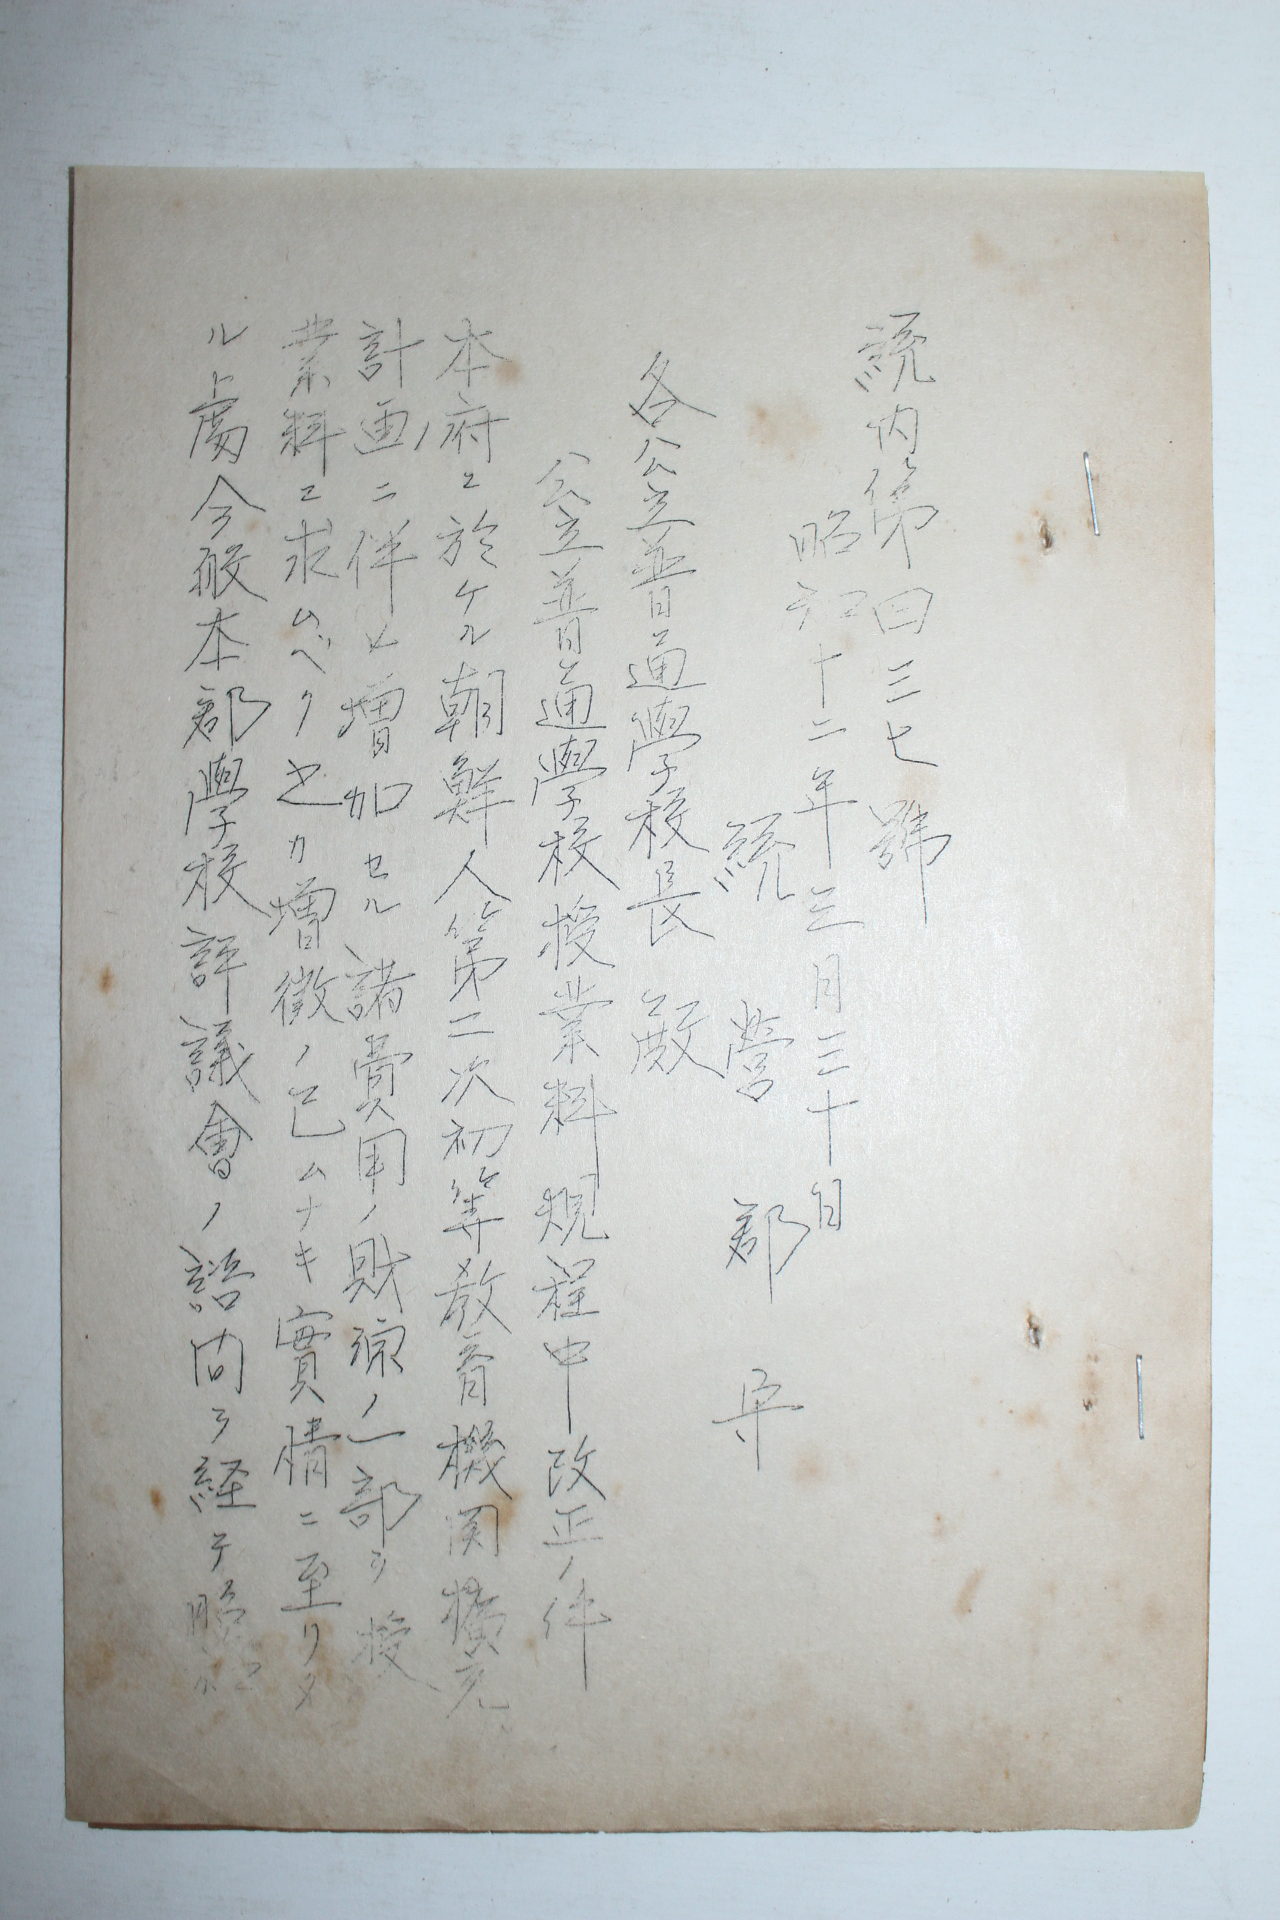 統内第四三七號
昭和十二年三月三十日
統營郡守
各公立普通學校長殿
公立普通學校授業料規程中改正ノ件
本府ニ於ケル朝鮮人第二次初等教育機関擴充
計画ニ伴ヒ増加セル諸費用ノ財源ノ一部ヲ授
業料ニ求ムベク之カ増徴ノ已ムナキ實情ニ至リタ
ル処今般本郡學校評議會ノ諮問ヲ経テ